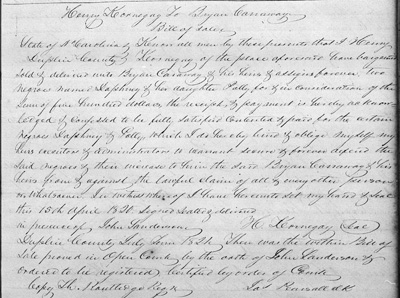 Henry Kornegay To Bryan Carraway
Bill of Sale
State of N Carolina & Know all men by these presents that I Henry
Duplin County & Kornegay of the place aforesaid have bargained
sold & delivered unto Bryan Caraway & his heirs & assigns forever two
negroes named Daphney & her daughter Patty for & in consideration of the
sum of five hundred dollars, the receipt & payment is hereby acknow-
ledged & confessed to be fully satisfied contented & paid for the certain
negroes Daphney & Patty which I do hereby bind & oblige myself my
heirs executors & administrators to warrant secure & forever defend the
said negroes & their increase to him the said Bryan Carraway & his
heirs from & against the lawful claim of all & every other person
whatsoever. In witness whereof I have hereunto set my hand & seal
this 15th April 1820. Signed Sealed & delivered
in presence of John Sanderson H. Kornegay Seal
Duplin County July Term 1821. Then was the within Bill of
Sale proved in Open Court by the oath of John Sanderson &
ordered to be registered Certified by order of Court
Copy Th. Routledge Regr Jas Pearsall clk